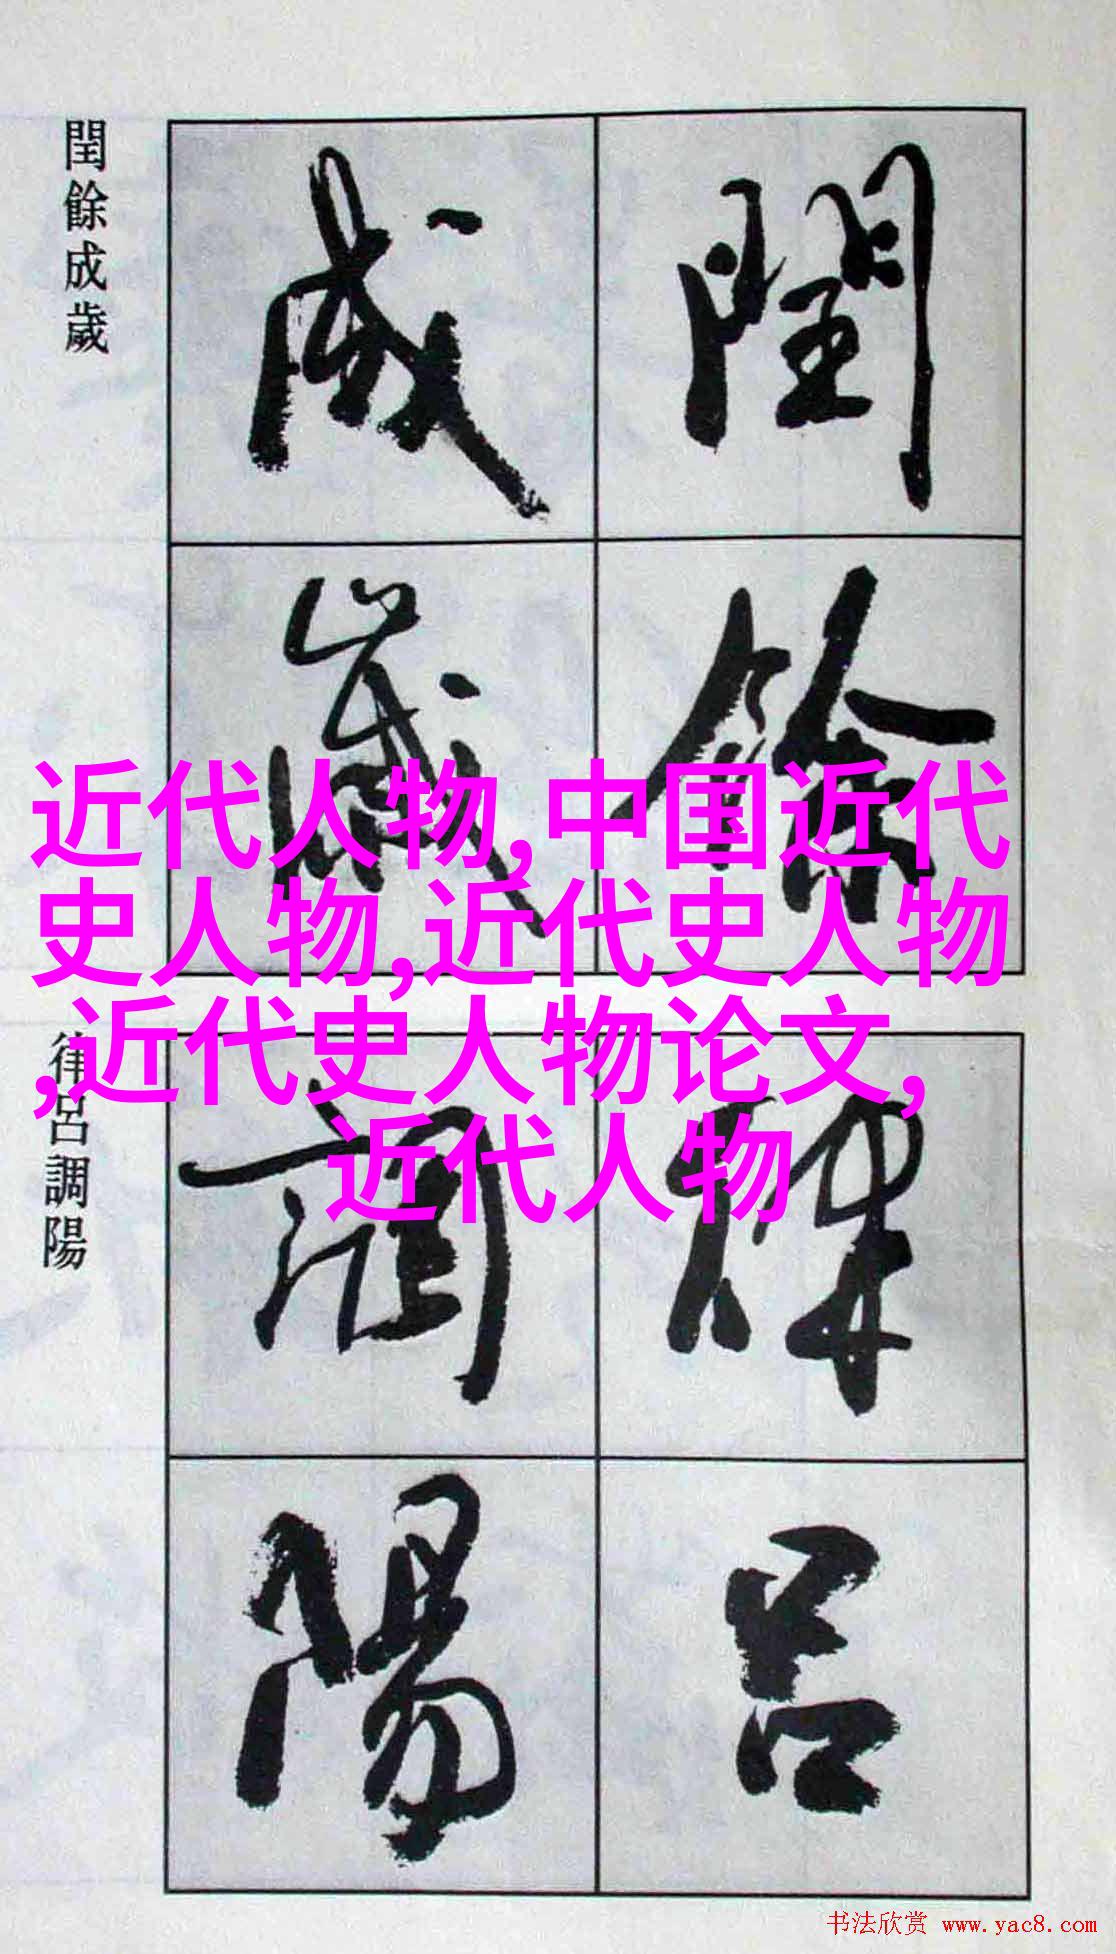 閏餘
成歲
閏餘成歲
近代人物,中国近代
史人物,近代史人物
,近代史人物论文,
近代人物
律呂
調陽
律呂調陽
书法欣赏 www.yac8.com